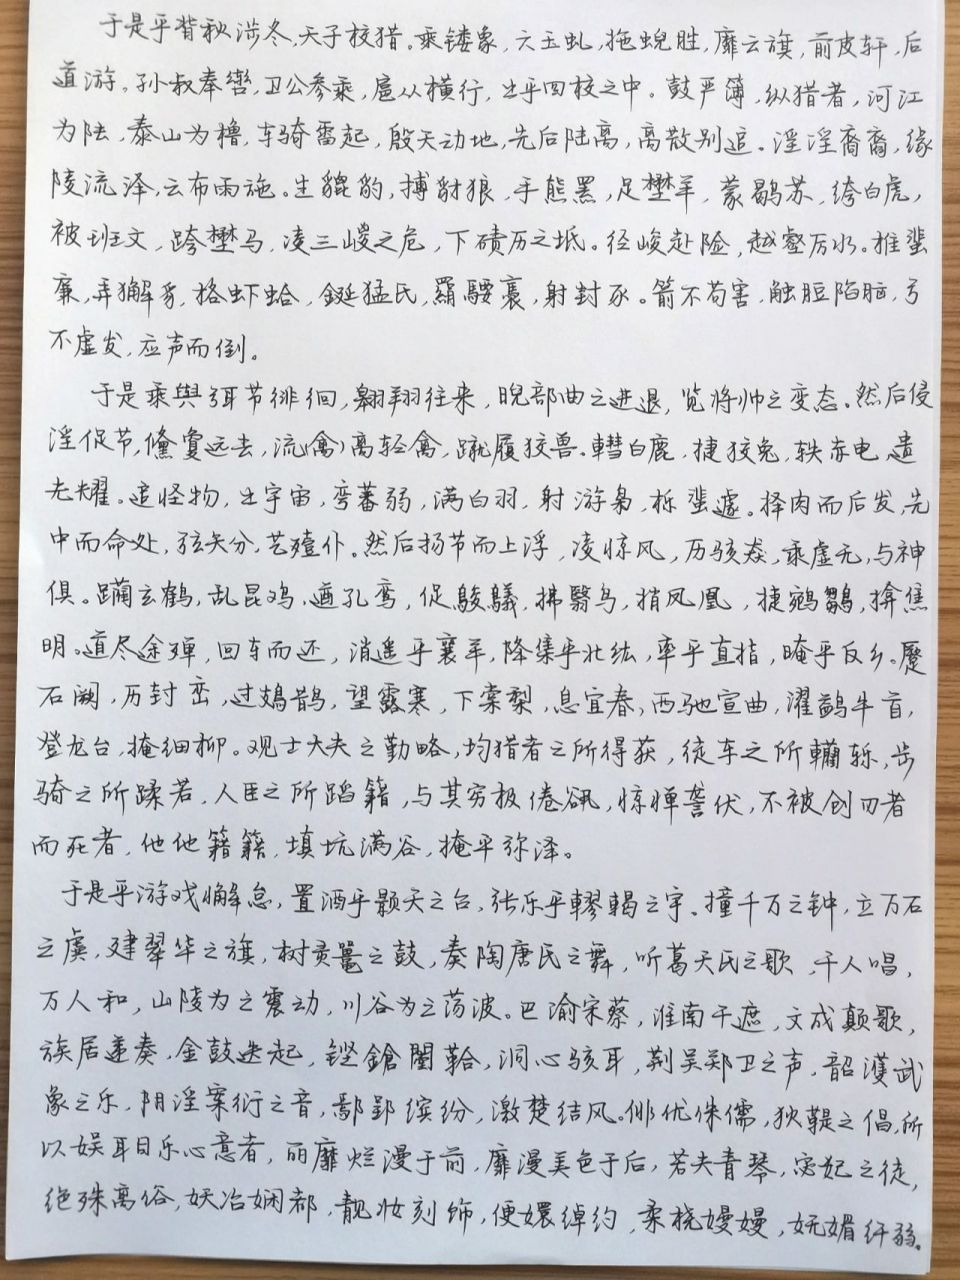 于是乎背秋涉冬,天子校猎。乘镂象,六玉虬,拖蜺旌,靡云旗,前皮轩,后
道游。孙叔奉辔,卫公参乘,扈从横行,出乎四校之中。鼓严簿,纵猎者,河江
为阹,泰山为橹,车骑雷起,殷天动地,先后陆离,离散别追。淫淫裔裔,缘
陵流泽,云布雨施。生貔豹,搏豺狼,手熊罴,足壄羊,蒙鹖苏,绔白虎,
被班文,跨壄马,凌三嵕之危,下碛历之坻。径峻赴险,越壑厉水。推蜚
廉,弄獬豸,格虾蛤,鋋猛氏,羂騕褭,射封豕。箭不苟害,触脰陷脑,弓
不虚发,应声而倒。
于是乘舆弭节徘徊,翱翔往来,睨部曲之进退,览将帅之变态。然后侵
淫促节,儵夐远去,流(禽)离轻禽,蹴履狡兽。轊白鹿,捷狡兔,轶赤电,遗
光耀。追怪物,出宇宙,弯蕃弱,满白羽,射游枭,栎蜚遽。择肉而后发,先
中而命处,弦矢分,艺殪仆。然后扬节而上浮,凌惊风,历骇猋,乘虚无,与神
俱。躏玄鹤,乱昆鸡,遒孔鸾,促鵔鸃,拂翳鸟,捎凤凰,捷鹓鶵,揜焦
明。道尽途殚,回车而还,消遥乎襄羊,降集乎北纮,率乎直指,晻乎反乡。蹷
石阙,历封峦,过鳷鹊,望露寒,下棠梨,息宜春,西驰宣曲,濯鹢牛首,
登龙台,掩细柳。观士大夫之勤略,均猎者之所得获,徒车之所轥轹,步
骑之所蹂若,人臣之所蹈籍,与其穷极倦㕁,惊惮詟伏,不被创刃者
而死者,他他籍籍,填坑满谷,掩平弥泽。
于是乎游戏懈怠,置酒乎颢天之台,张乐乎轇輵之宇。撞千石之钟,立万石
之虡,建翠华之旗,树灵鼍之鼓,奏陶唐氏之舞,听葛天氏之歌,千人唱,
万人和,山陵为之震动,川谷为之荡波。巴渝宋蔡,淮南干遮,文成颠歌,
族居递奏,金鼓迭起,铿鎗闛鞈,洞心骇耳,荆吴郑卫之声,韶濩武
象之乐,阴淫案衍之音,鄢郢缤纷,激楚结风。俳优侏儒,狄鞮之倡,所
以娱耳目乐心意者,丽靡烂漫于前,靡漫美色于后,若夫青琴,宓妃之徒,
绝殊离俗,妖冶娴都,靓妆刻饰,便嬛绰约,柔桡嫚嫚,妩媚纤弱。